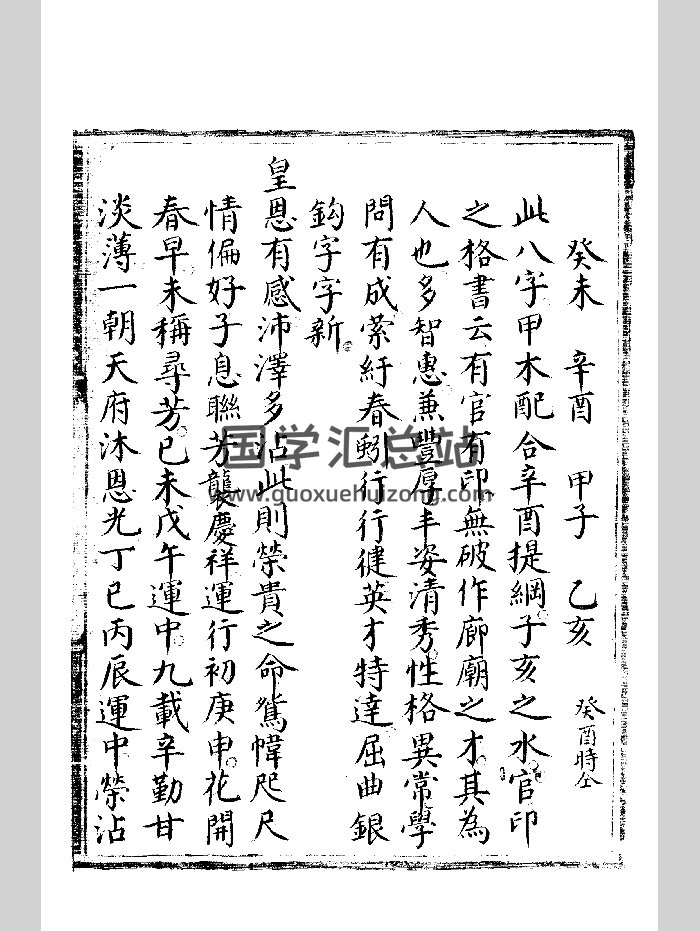 癸未 辛酉 甲子 乙亥 癸酉時仝
此八字甲木配合辛酉提綱。子亥之水。官印
之格書云有官有印無破作廊廟之才。其為
人也多智惠兼豐厚丰姿清秀。性格異常學
問有成縈紆春蚓行行健英才特達屈曲銀
鈎字字新。
皇恩有感沛澤多沾此則榮貴之命鴛幃咫尺
情偏好子息聯芳襲慶祥運行初庚申。花開
春早未稱尋芳。巳未戊午運中。九載辛勤甘
淡薄一朝天府沐恩光丁巳丙辰運中榮沾
国学汇总站
www.guoxuehuizong.com